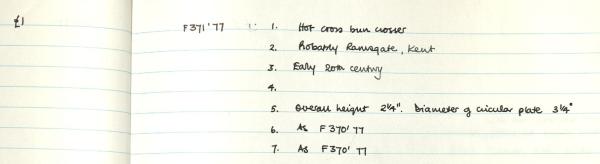 £1 F371'77 1. Hot cross bun crosser
2. Probably Ramsgate, Kent
3. Early 20th century
4.
5. Overall height 2¼". Diameter of circular plate 3¼"
6. As F370'77
7. As F370'77